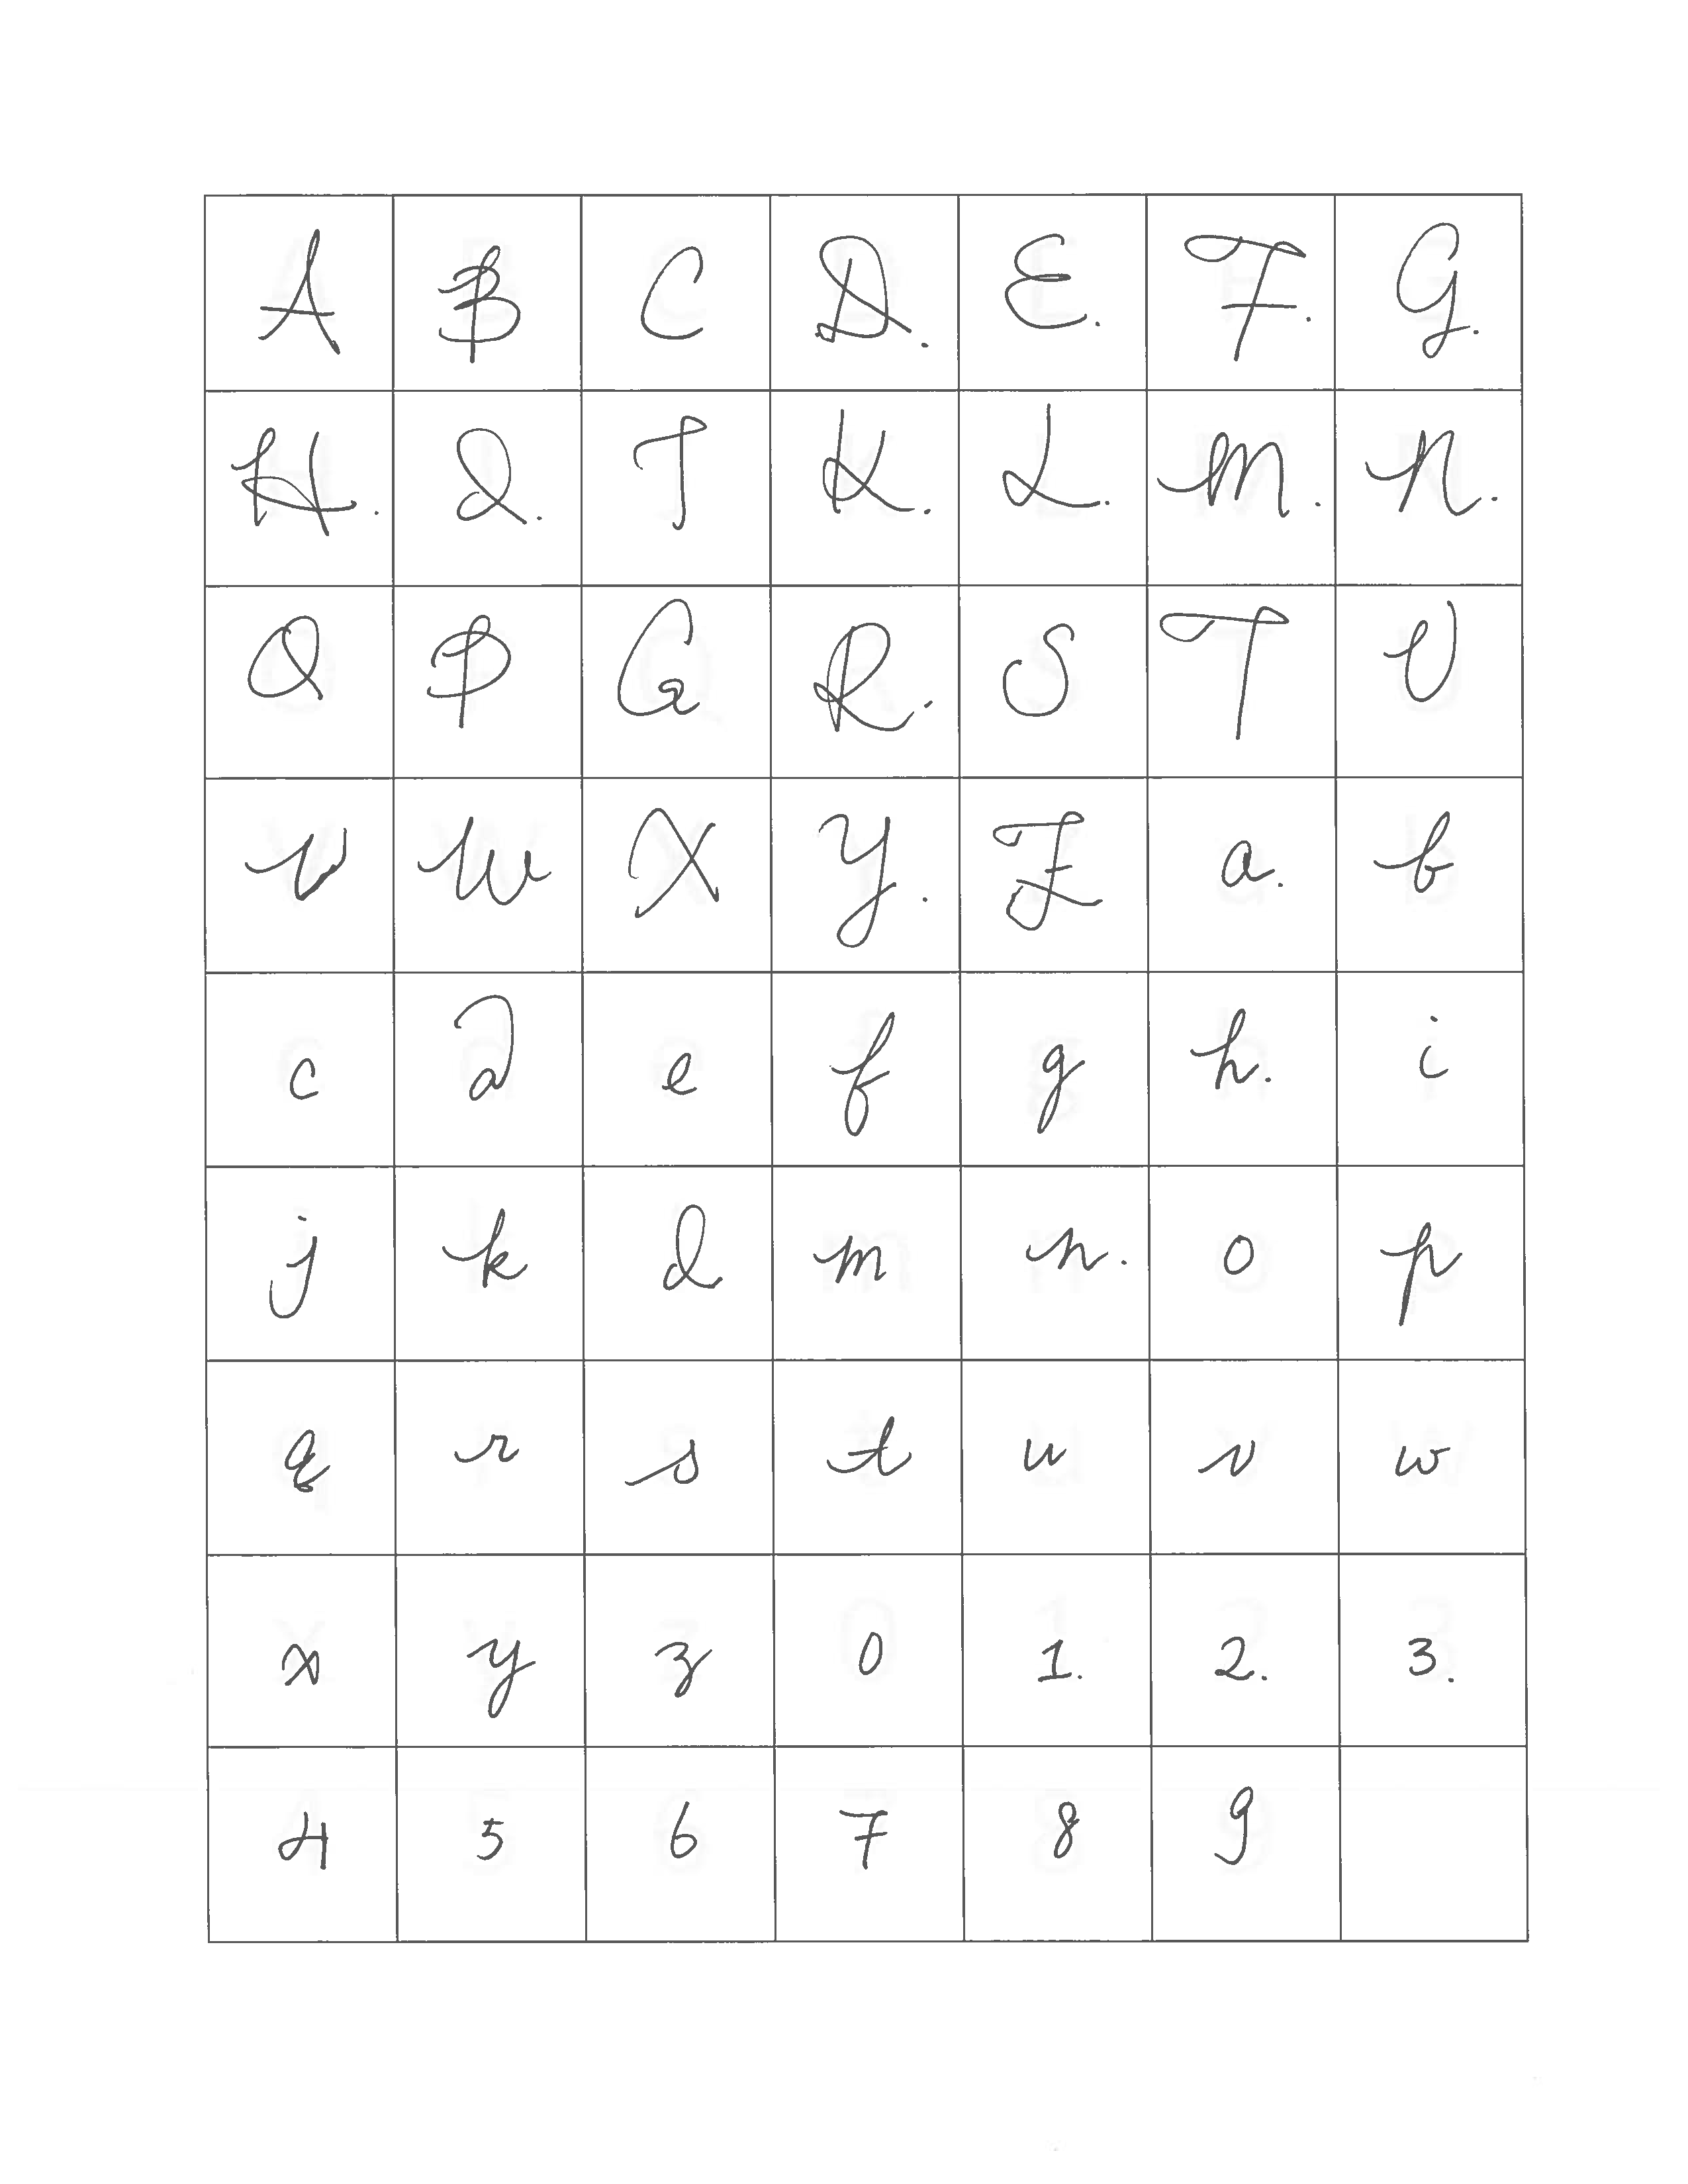 A B C D. E. F. G.
H. I. J K. L. M. N.
O P Q R. S T U
V W X Y. Z a. b
c d e f g h. i
j k l m n. o p
q r s t u v w
x y z 0 1. 2. 3.
4 5 6 7 8 9